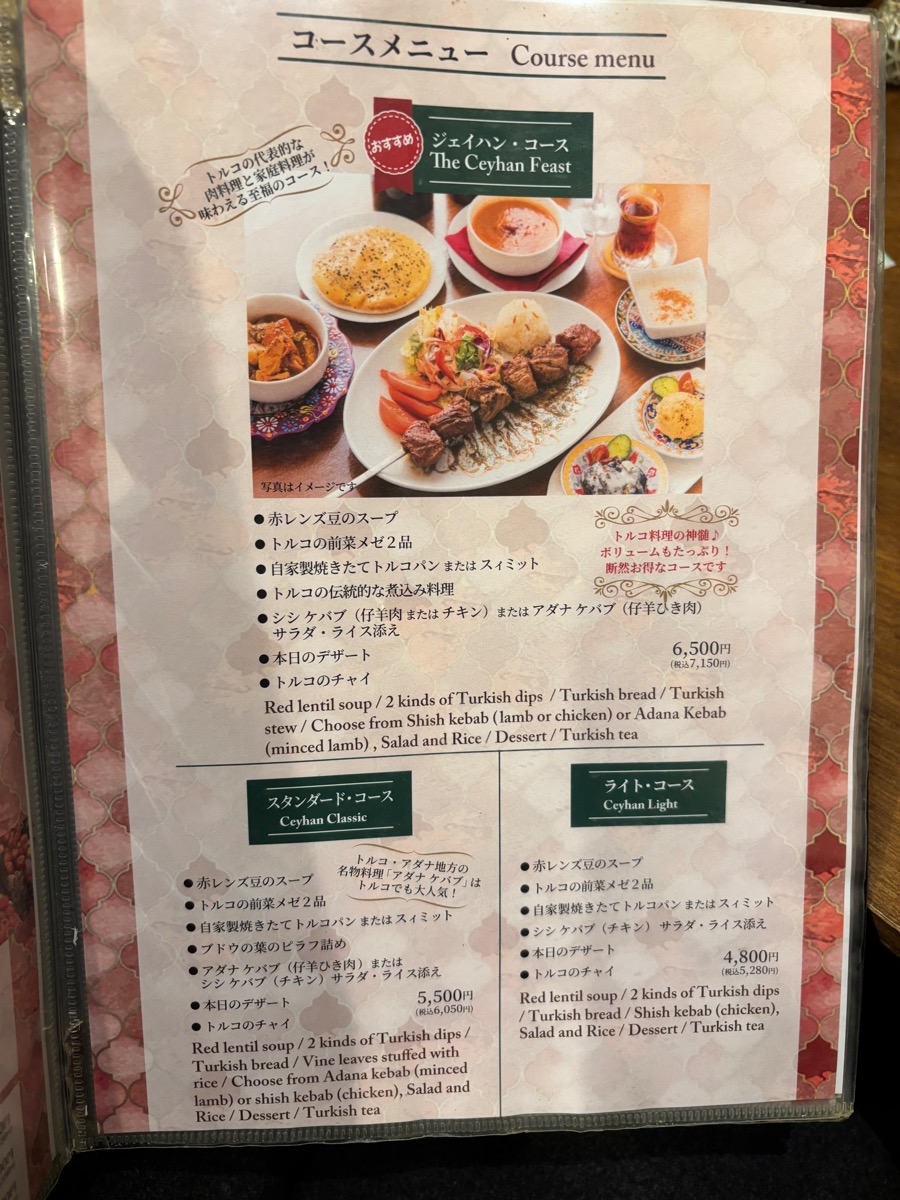 コースメニュー Course menu
おすすめ
ジェイハン・コース
The Ceyhan Feast
トルコの代表的な
肉料理と家庭料理が
味わえる至福のコース！
写真はイメージです
●赤レンズ豆のスープ
●トルコの前菜メゼ２品
●自家製焼きたてトルコパン または スィミット
●トルコの伝統的な煮込み料理
●シシ ケバブ（仔羊肉 または チキン）または アダナ ケバブ（仔羊ひき肉）
サラダ・ライス添え
●本日のデザート
●トルコのチャイ
トルコ料理の神髄♪
ボリュームもたっぷり！
断然お得なコースです
6,500円
(税込7,150円)
Red lentil soup / 2 kinds of Turkish dips / Turkish bread / Turkish
stew / Choose from Shish kebab (lamb or chicken) or Adana Kebab
(minced lamb) , Salad and Rice / Dessert / Turkish tea
スタンダード・コース
Ceyhan Classic
トルコ・アダナ地方の
名物料理「アダナ ケバブ」は
トルコでも大人気！
●赤レンズ豆のスープ
●トルコの前菜メゼ２品
●自家製焼きたてトルコパン または スィミット
●ブドウの葉のピラフ詰め
●アダナ ケバブ（仔羊ひき肉）または
シシ ケバブ（チキン）サラダ・ライス添え
●本日のデザート
●トルコのチャイ
5,500円
(税込6,050円)
Red lentil soup / 2 kinds of Turkish dips /
Turkish bread / Vine leaves stuffed with
rice / Choose from Adana kebab (minced
lamb) or shish kebab (chicken), Salad and
Rice / Dessert / Turkish tea
ライト・コース
Ceyhan Light
●赤レンズ豆のスープ
●トルコの前菜メゼ２品
●自家製焼きたてトルコパン または スィミット
●シシ ケバブ（チキン） サラダ・ライス添え
●本日のデザート
●トルコのチャイ
4,800円
(税込5,280円)
Red lentil soup / 2 kinds of Turkish dips
/ Turkish bread / Shish kebab (chicken),
Salad and Rice / Dessert / Turkish tea